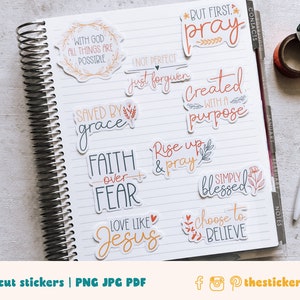 BUT FIRST
pray
WITH GOD
ALL THINGS ARE
POSSIBLE
NOT PERFECT
just forgiven
Created
WITH A
purpose
SAVED BY
grace
FAITH
over
FEAR
Rise up
& pray
SIMPLY
blessed
LOVE LIKE
Jesus
choose to
BELIEVE
cut stickers | PNG JPG PDF
thesticker